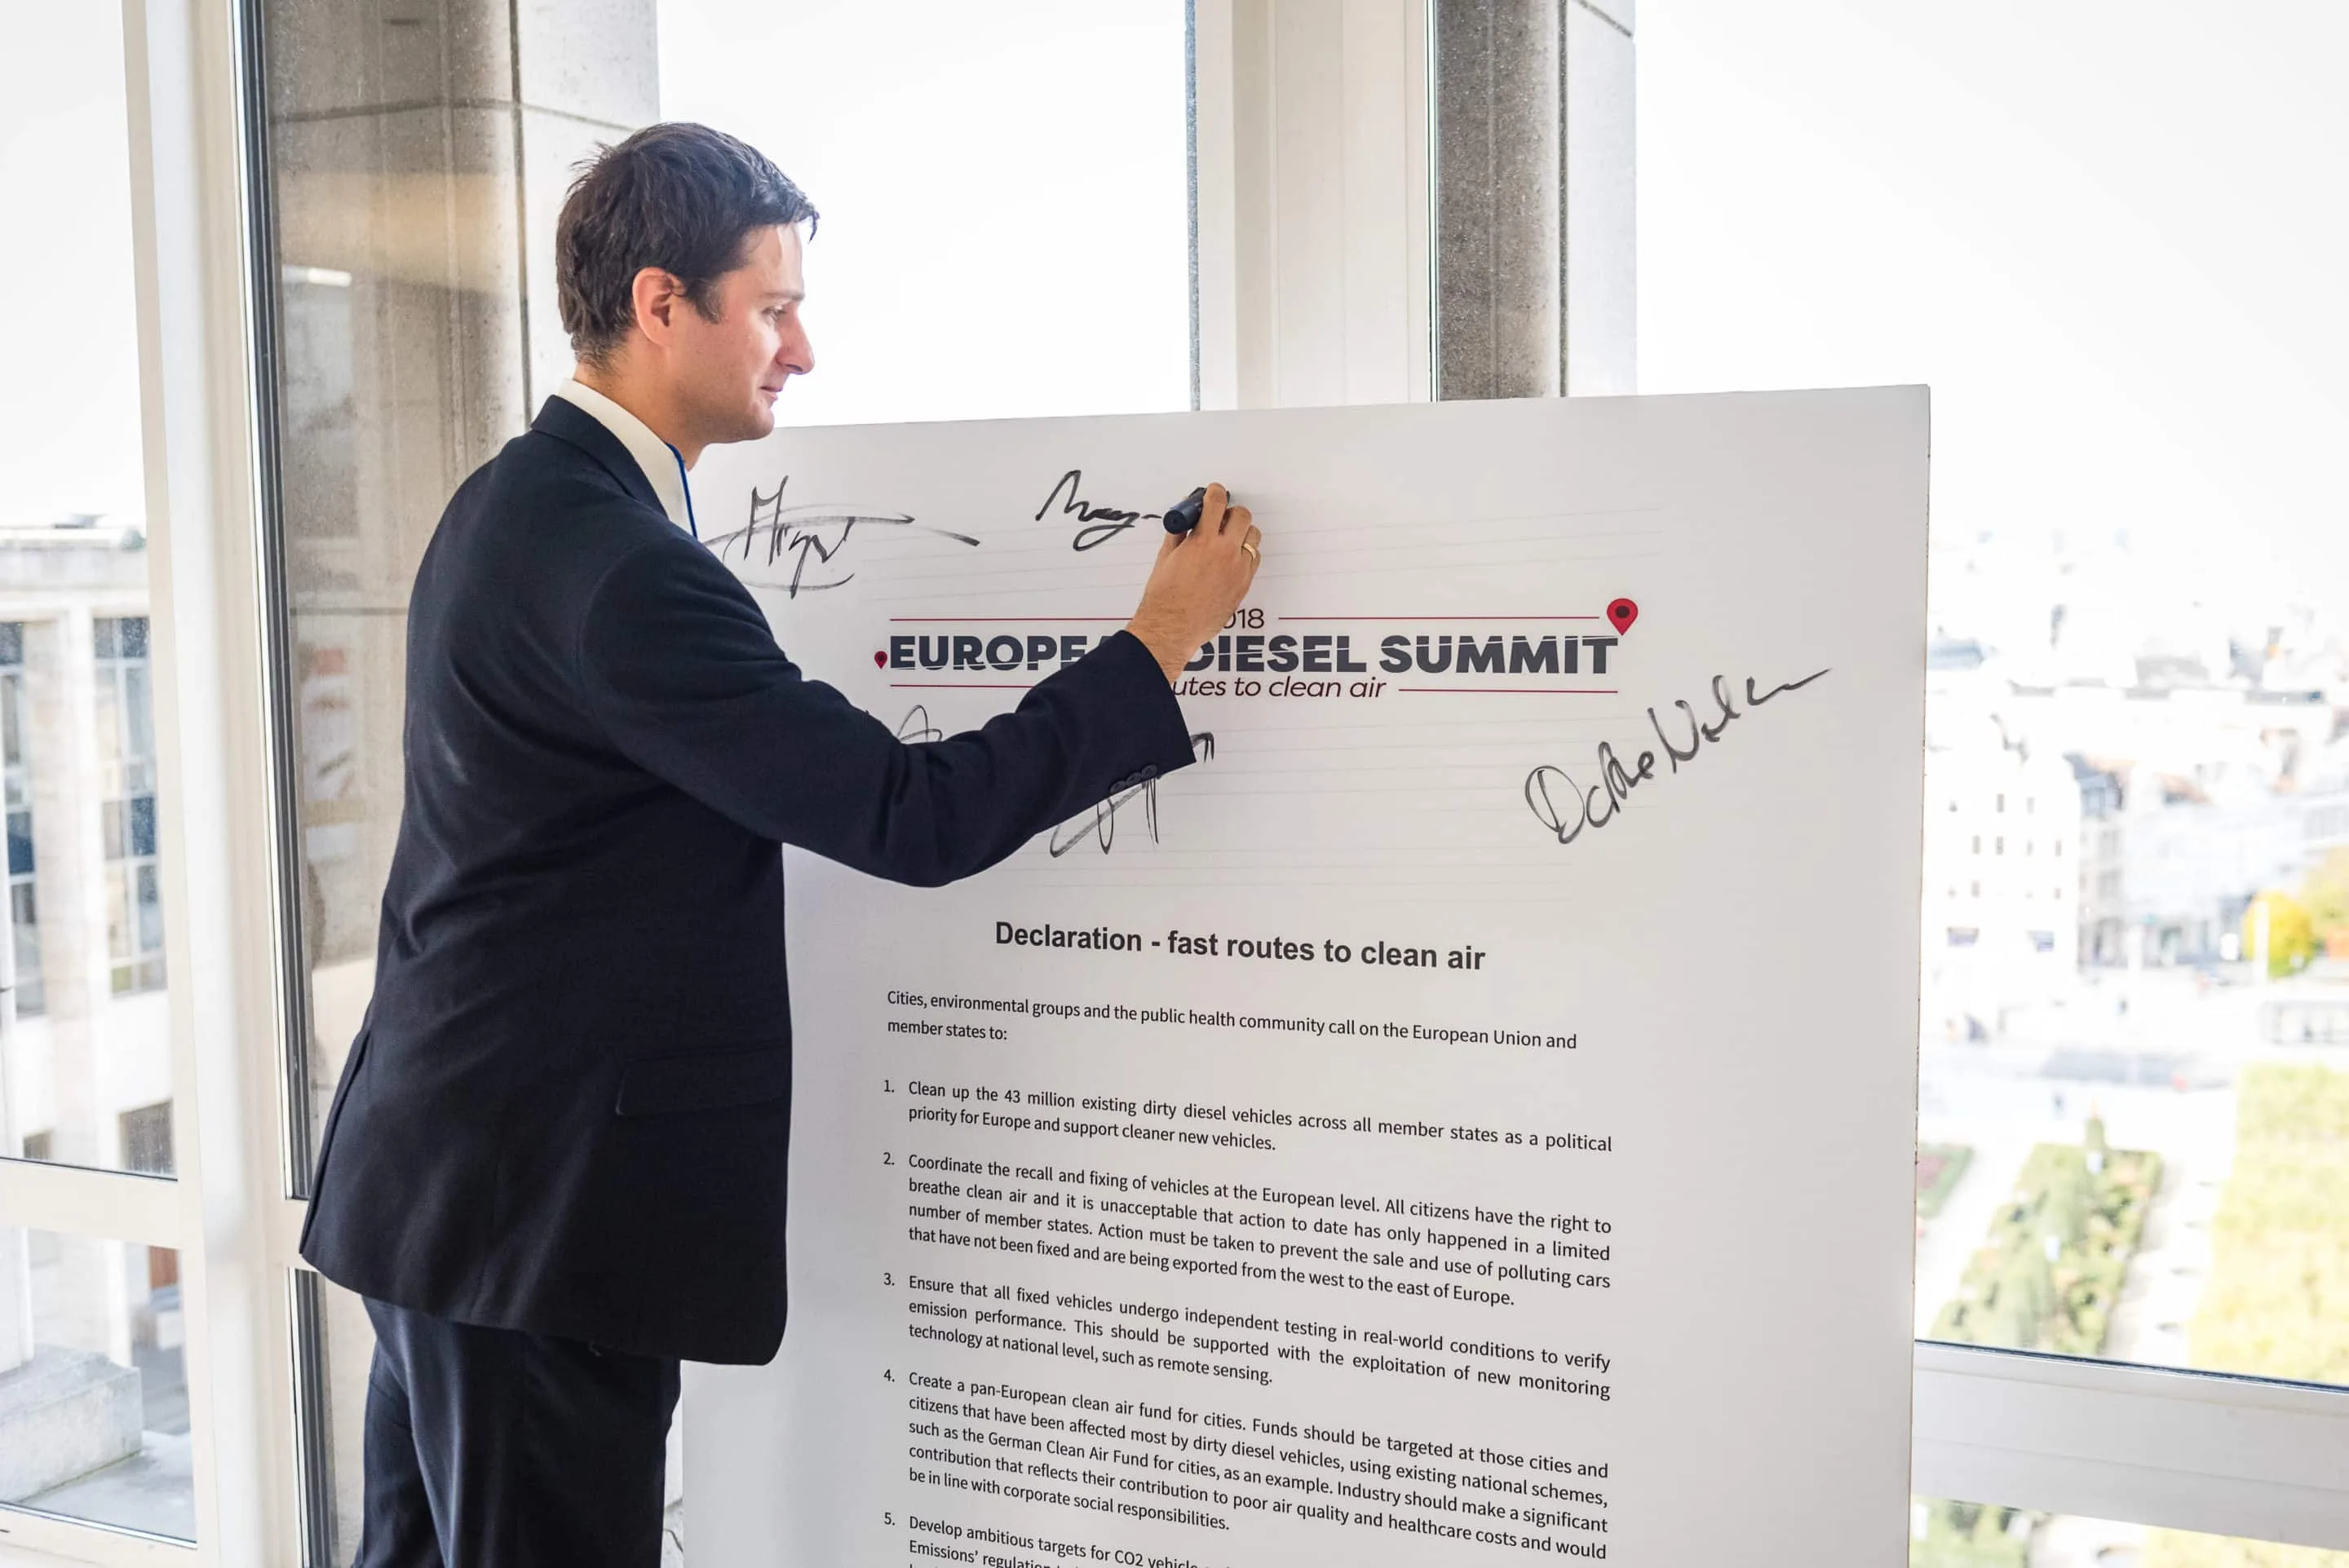 018
EUROPE DIESEL SUMMIT
utes to clean air
Declaration - fast routes to clean air
Cities, environmental groups and the public health community call on the European Union and
member states to:
1. Clean up the 43 million existing dirty diesel vehicles across all member states as a political
priority for Europe and support cleaner new vehicles.
2. Coordinate the recall and fixing of vehicles at the European level. All citizens have the right to
breathe clean air and it is unacceptable that action to date has only happened in a limited
number of member states. Action must be taken to prevent the sale and use of polluting cars
that have not been fixed and are being exported from the west to the east of Europe.
3. Ensure that all fixed vehicles undergo independent testing in real-world conditions to verify
emission performance. This should be supported with the exploitation of new monitoring
technology at national level, such as remote sensing.
4. Create a pan-European clean air fund for cities. Funds should be targeted at those cities and
citizens that have been affected most by dirty diesel vehicles, using existing national schemes,
such as the German Clean Air Fund for cities, as an example. Industry should make a significant
contribution that reflects their contribution to poor air quality and healthcare costs and would
be in line with corporate social responsibilities.
5. Develop ambitious targets for CO2 vehicle
Emissions' regulation